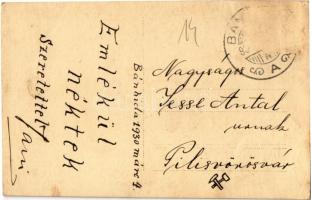 14
Emlékül
néktek
szeretettel
Bánhida 1930 márc 4.
BÁN
Nagyságos
Jesse Antal
urnak
Pilisvörösvár